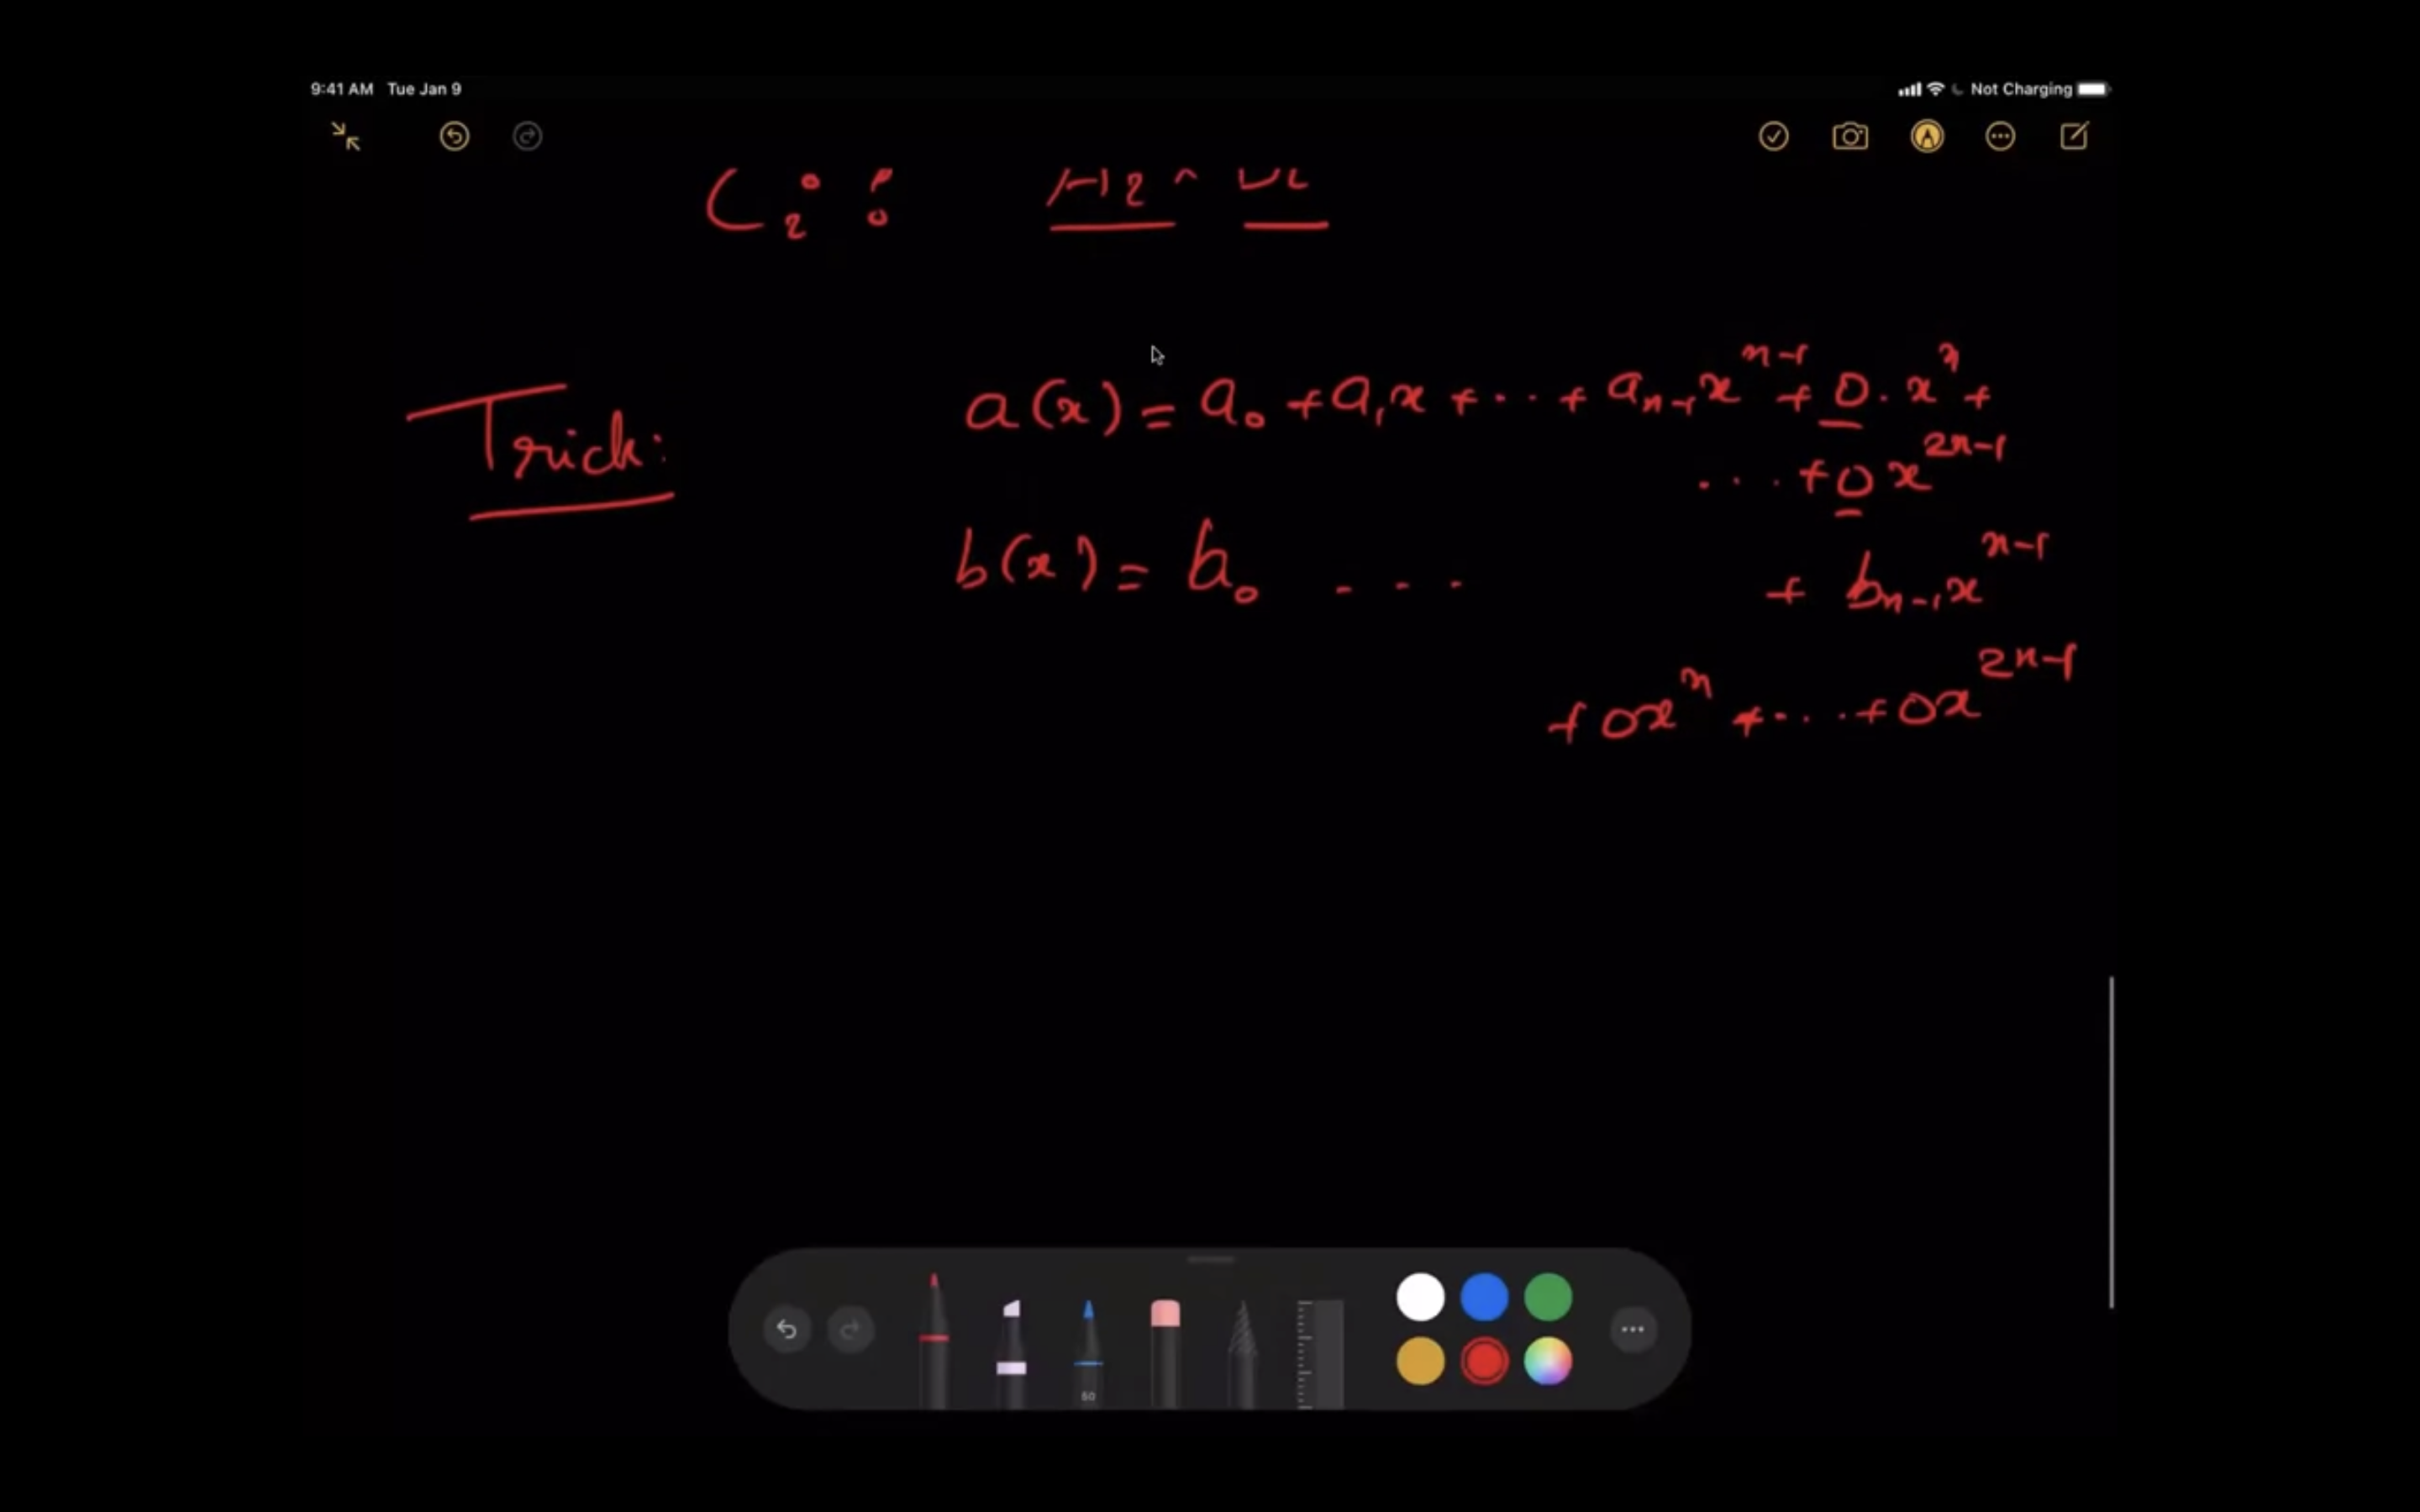 9:41 AM Tue Jan 9 Not Charging
C₂ :
Trick: a(x) = a₀ + a₁x + ... + aₙ₋₁xⁿ⁻¹ + 0 . xⁿ +
... + 0x²ⁿ⁻¹
b(x) = b₀ ... + bₙ₋₁xⁿ⁻¹
+ 0xⁿ + ... + 0x²ⁿ⁻¹
50